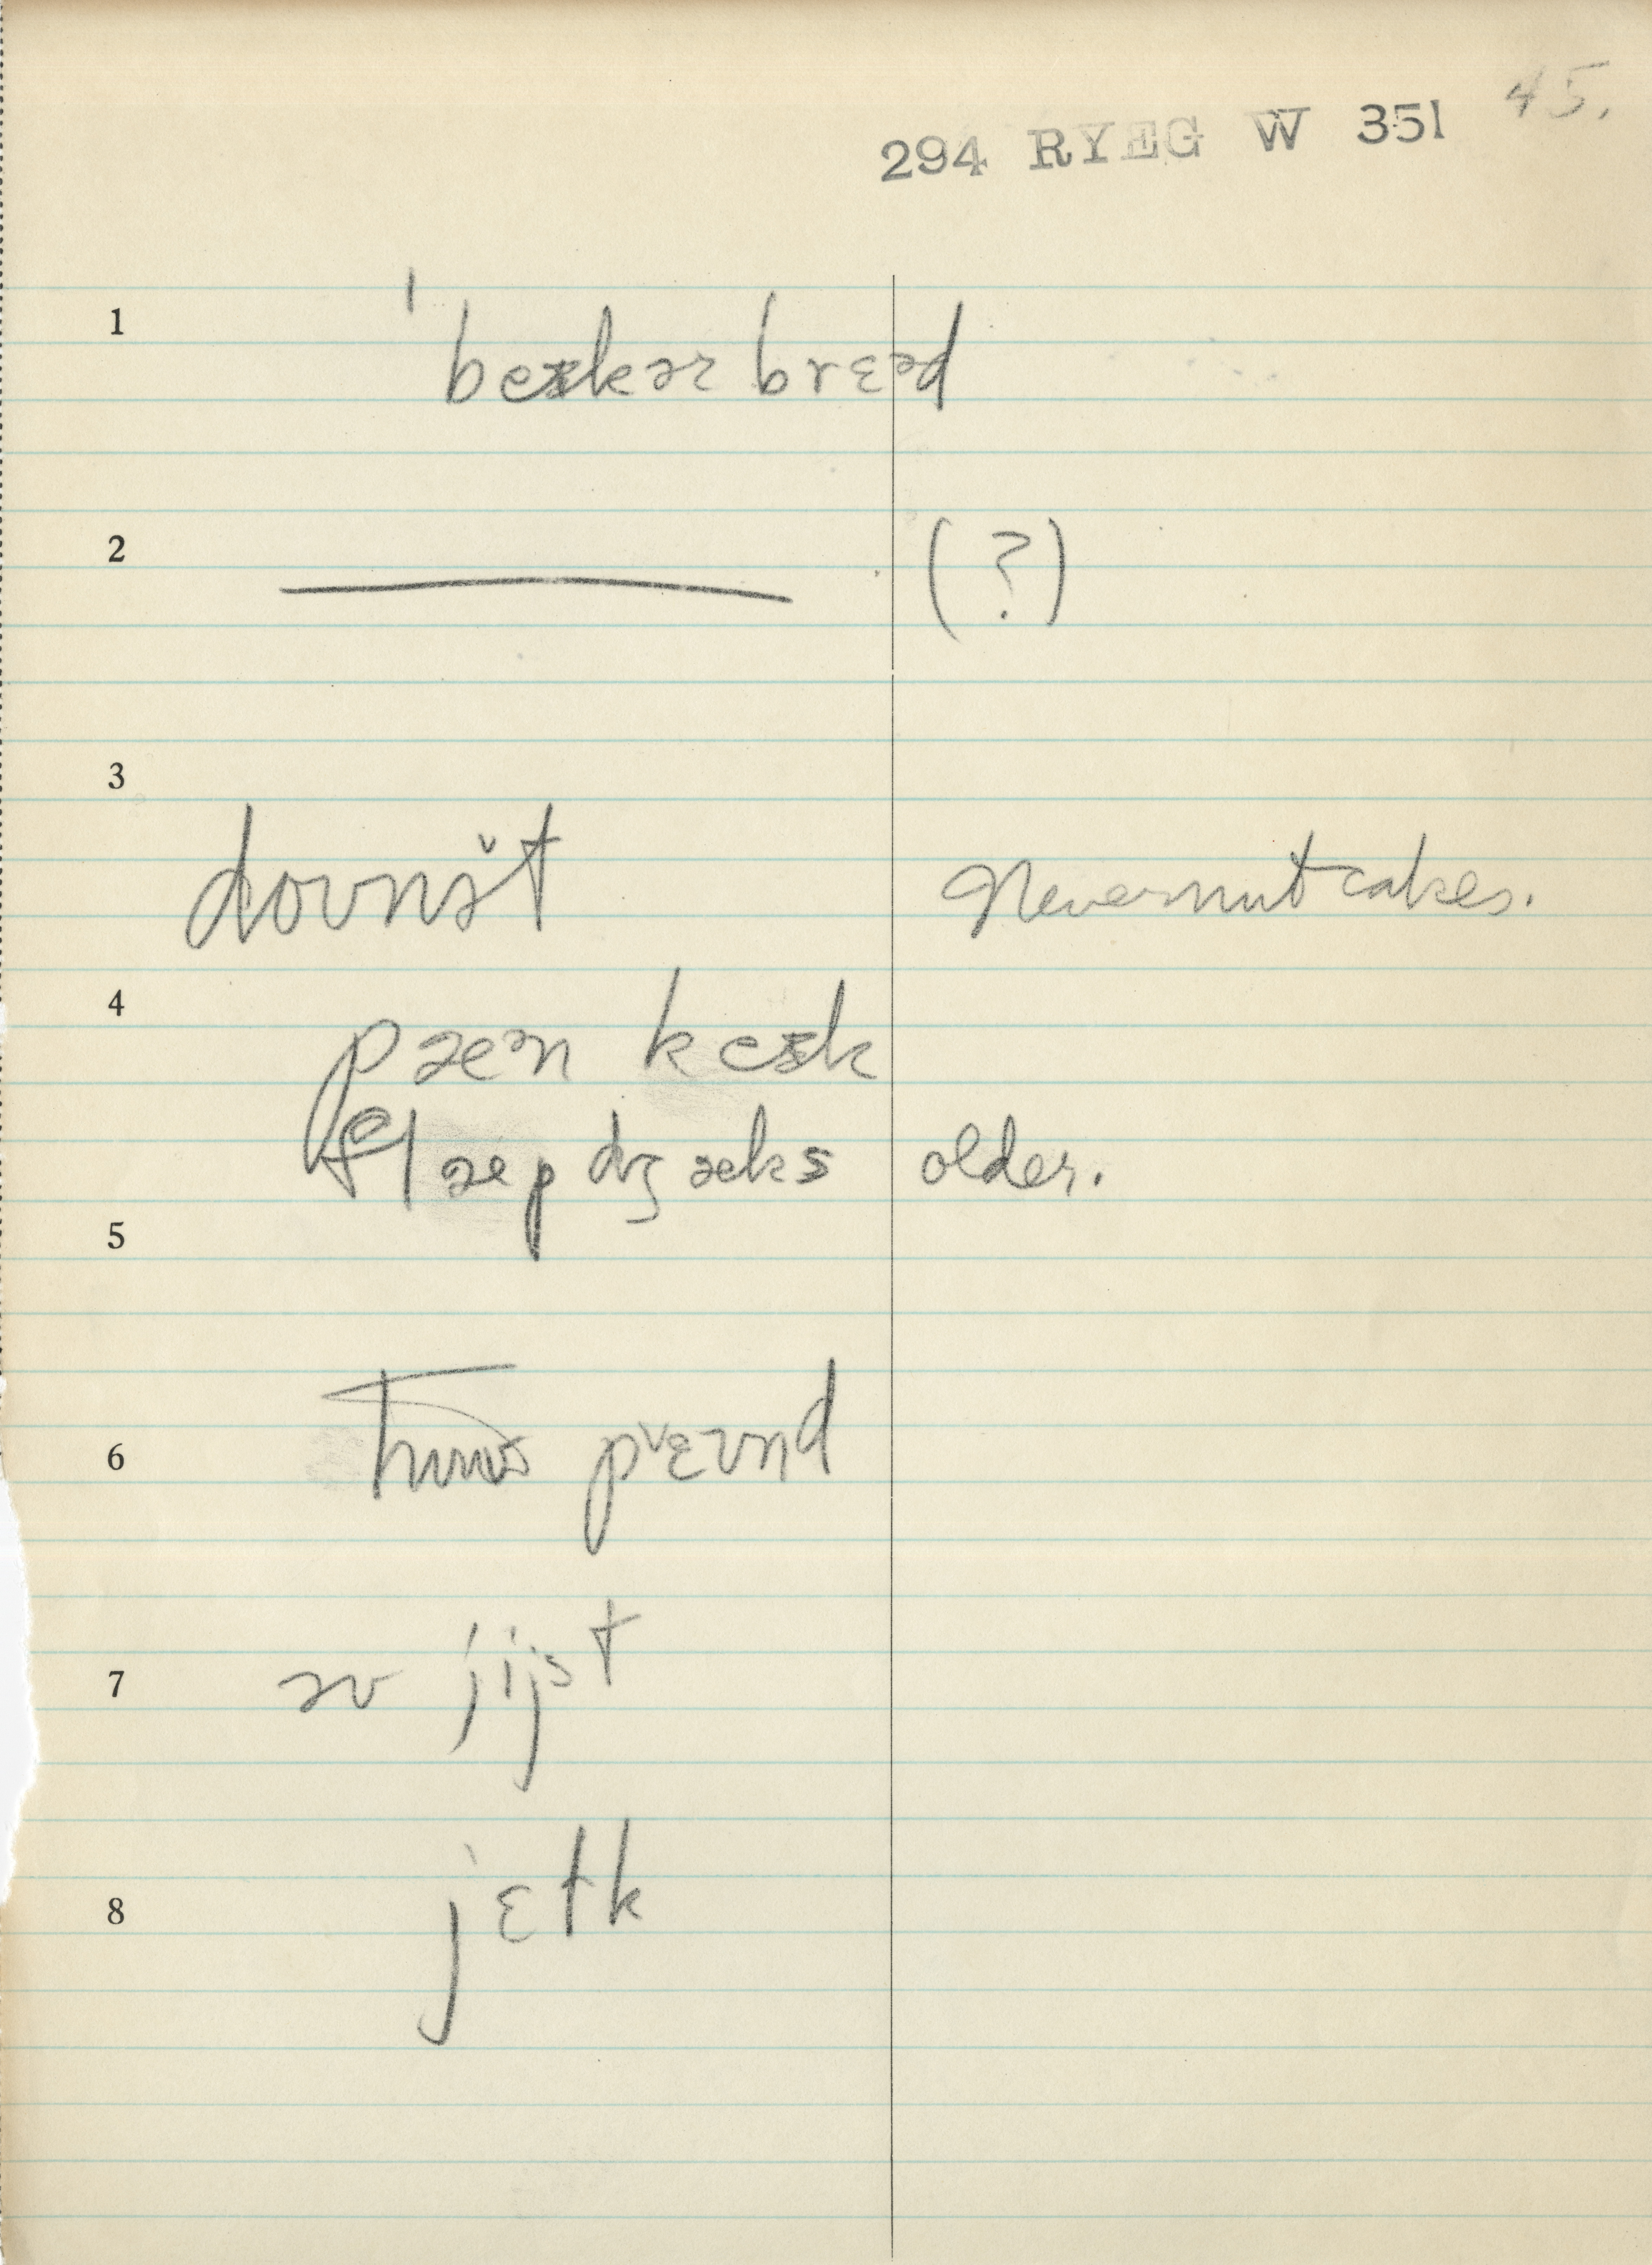 45.
294 RYEG W 351
1
ˈbeɪkər brɛəd
2 (?)
3
doʊnət Nevernut cakes.
4
pæən keɪk
flæpdʒæks older.
5
6
pɛʊnd
7 əv jijst
8 jɛlk